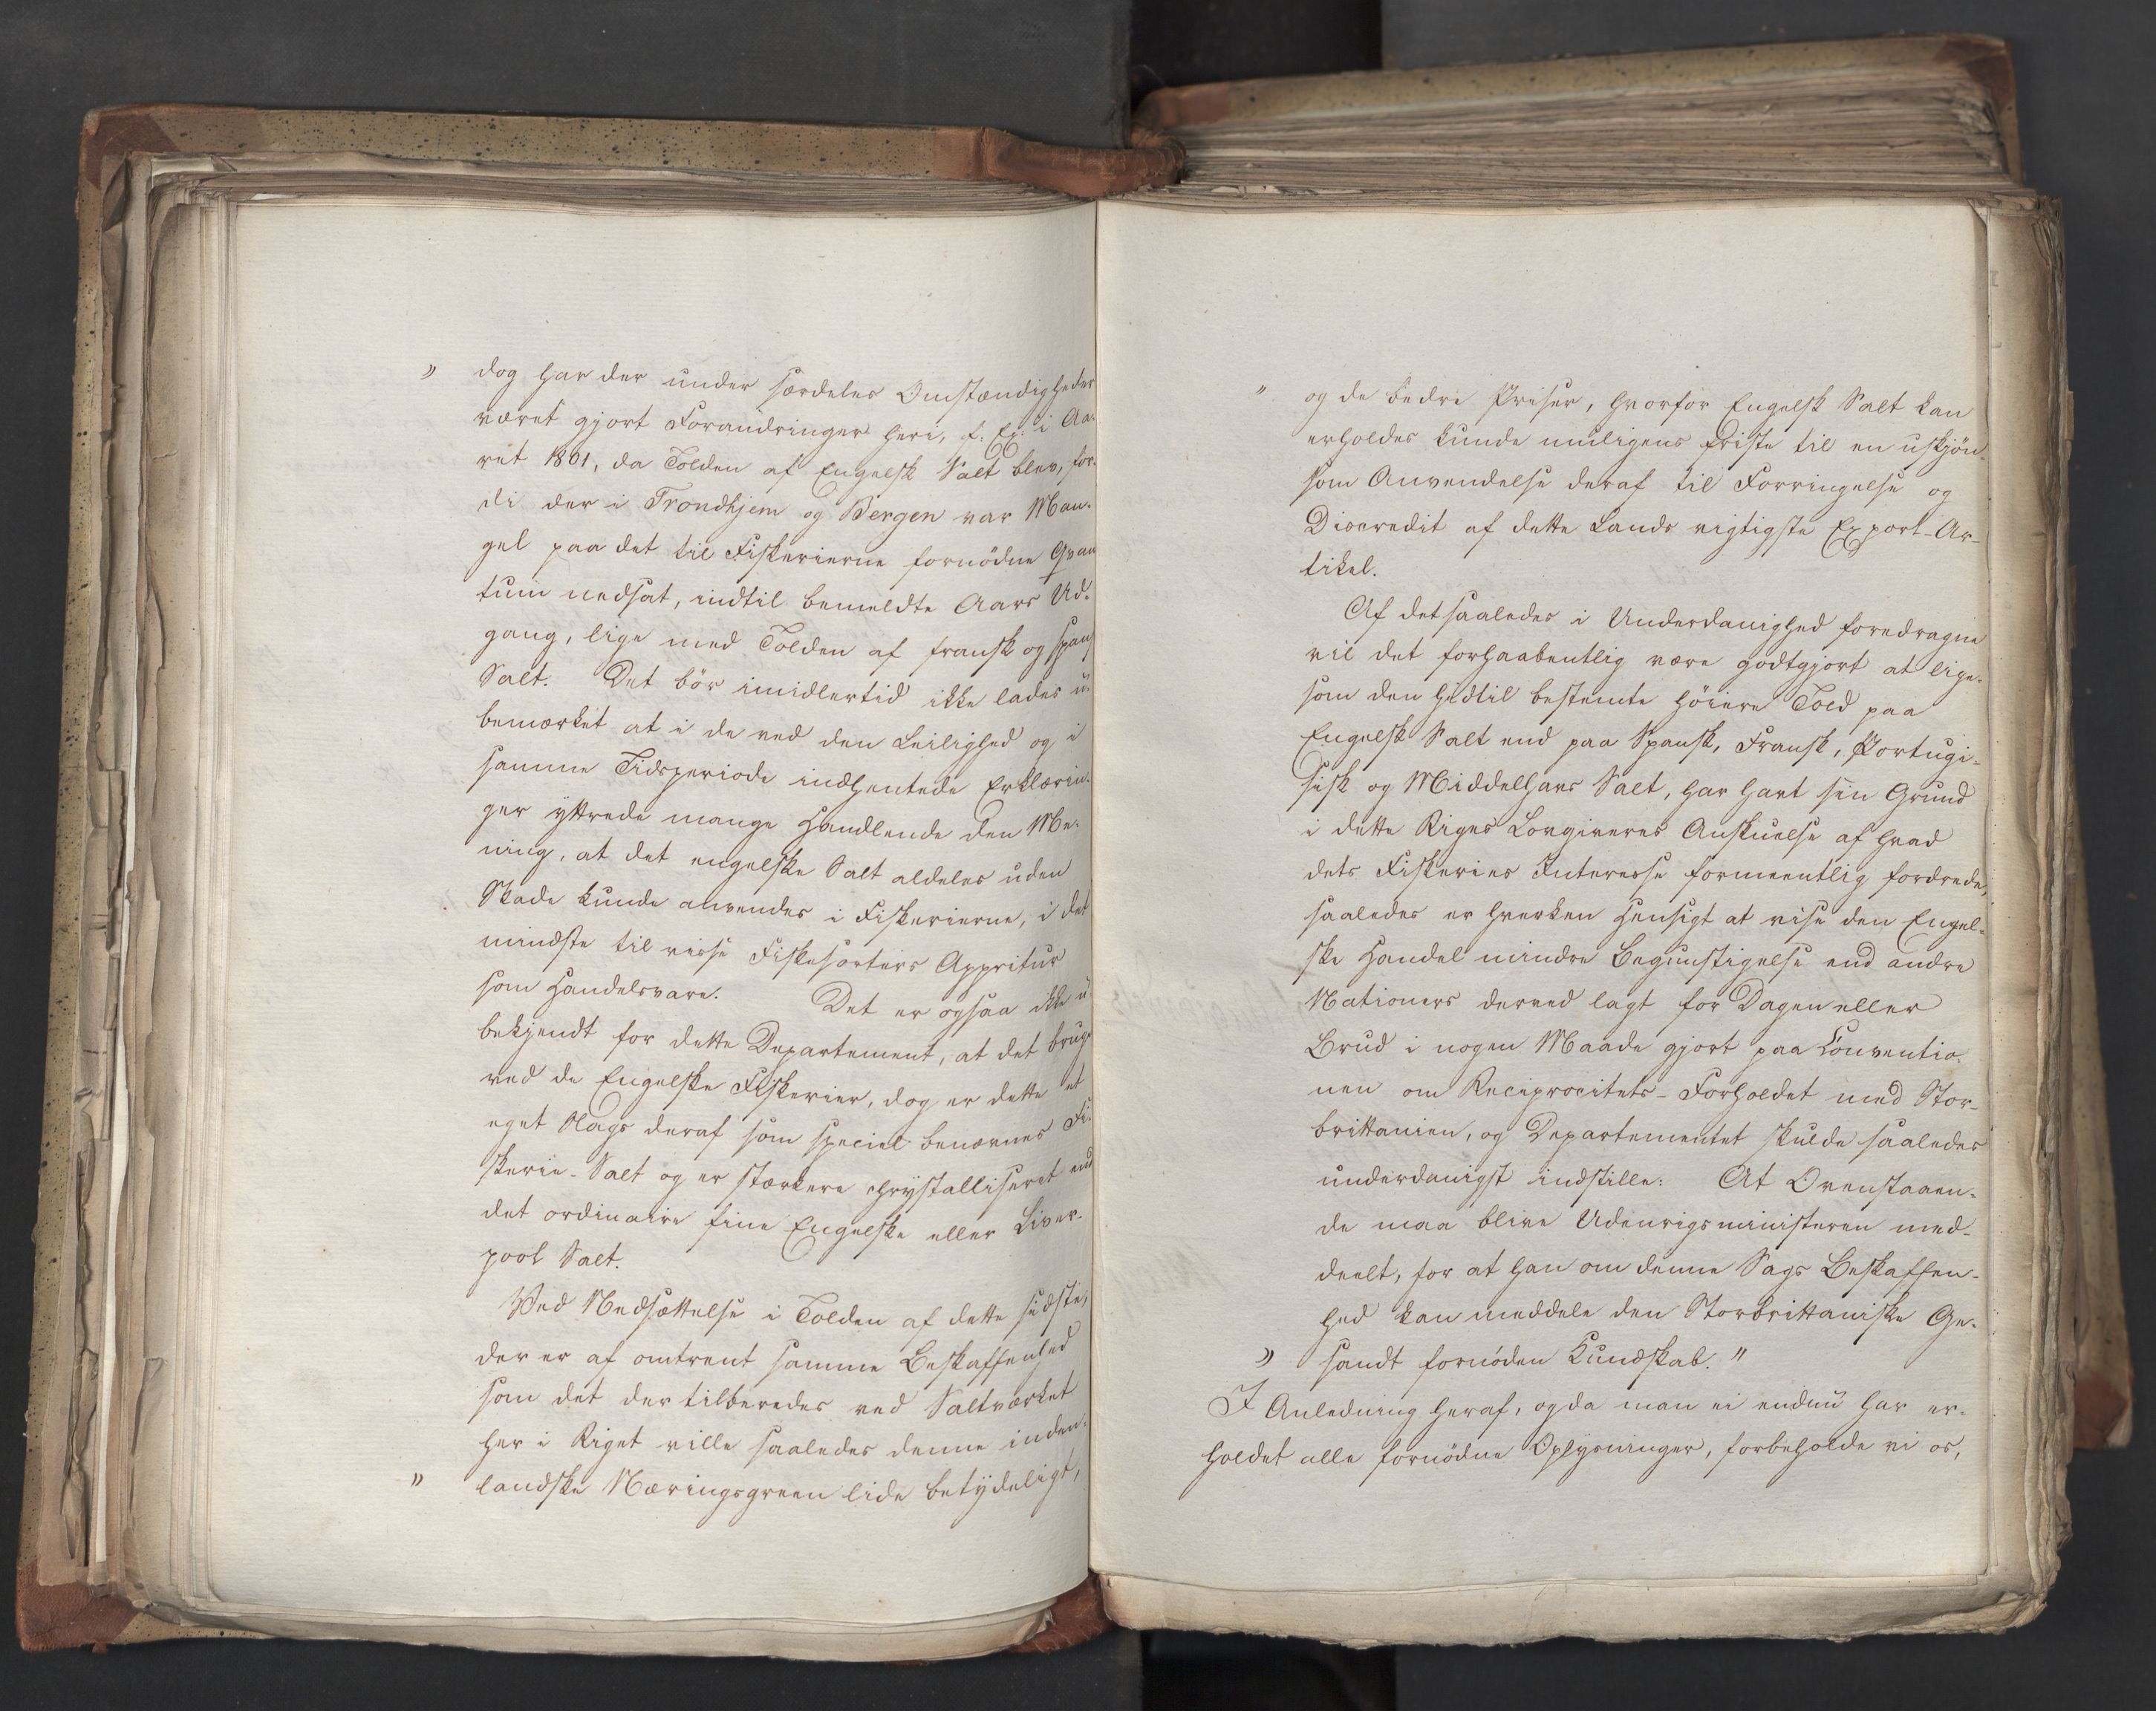 " dog har der under særdeles Omstændigheder
været gjort Forandringer heri, f: Ex: i Aa-
ret 1801, da Tolden af Engelsk Salt blev, for-
di der i Trondhjem og Bergen var Man-
gel paa det til Fiskerierne fornödne Qvan
tum nedsat, indtil bemeldte Aars Ud-
gang, lige med Tolden af fransk og spansk
Salt. Det bör imidlertid ikke lades u-
bemærket at i de ved den Leilighed og i
samme Tidsperiode indhentede Erklærin-
ger yttrede mange Handlende den Me-
ning, at det engelske Salt aldeles uden
Skade kunde anvendes i Fiskerierne, i det
mindste til visse Fiskesorters Appritur
som Handelsvare. Det er ogsaa ikke u
bekjendt for dette Departement, at det bruges
ved de Engelske Fiskerier, dog er dette et
eget Slags deraf som speciel benævnes Fi-
skerie-Salt og er stærkere chrystalliseret end
det ordinaire fine Engelske eller Liver-
pool Salt.
Ved Nedsættelse i Tolden af dette sidste,
der er af omtrent samme Beskaffenhed
som det der tilberedes ved Saltværket
her i Riget ville saaledes denne inden-
" landske Næringsgreen lide betydeligt,
" og de bedre Priser, hvorfor Engelsk Salt kan
erholdes kunde muligens friste til en uskjön-
som Anvendelse deraf til Forringelse og
Discredit af dette Lands vigtigste Export-Ar-
tikel.
Af det saaledes i Underdanighed foredragne
vil det forhaabentlig være godtgjort at lige-
som den hidtil bestemte höiere Told paa
Engelsk Salt end paa Spansk, Fransk, Portugi-
sisk og Middelhavs Salt, har havt sin Grund
i dette Riges Lovgiveres Anskuelse af hvad
dets Fiskeries Interesse formeentlig fordrede,
saaledes er hverken Hensigt at vise den Engel-
ske Handel mindre Begunstigelse end andre
Nationers derved lagt for Dagen eller
Brud i nogen Maade gjort paa Conventio-
nen om Reciprocitets-Forholdet med Stor-
brittanien, og Departementet skulde saaledes
underdanigst indstille: At Ovenstaaen-
de maa blive Udenrigsministeren med-
deelt, for at han om denne Sags Beskaffen-
hed kan meddele den Storbrittaniske Ge-
" sandt fornöden Kundskab."
I Anledning heraf, og da man ei endnu har er-
holdet alle fornödne Oplysninger, forbeholde vi os,